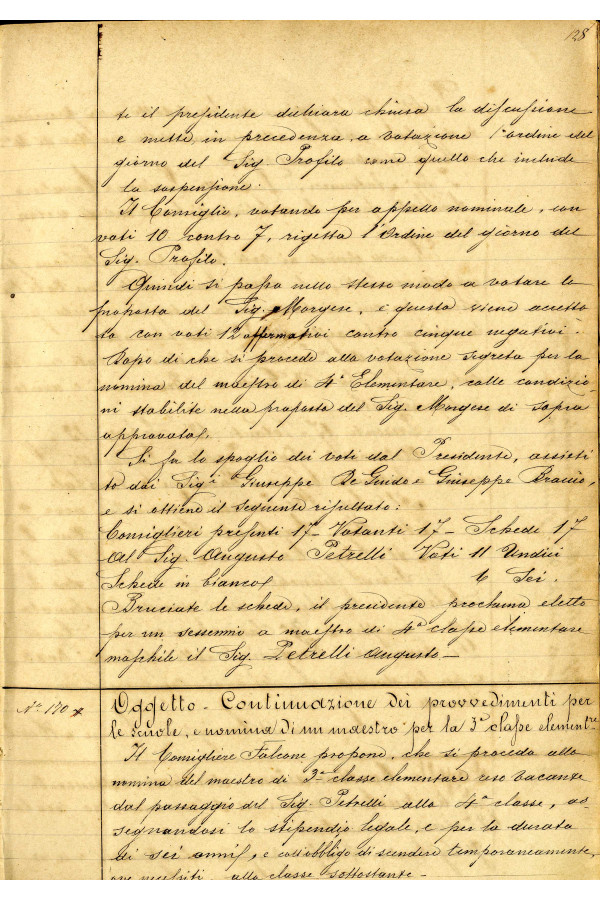 128
te il presidente dichiara chiusa la discussione
e mette in precedenza a votazione l'ordine del
giorno del Sig. Profilo come quello che include
la sospensione.
Il Consiglio, votando per appello nominale, con
voti 10 contro 7, rigetta l'ordine del giorno del
Sig. Profilo.
Quindi si passa nello stesso modo a votare la
proposta del Sig. Morgese, e questa viene accetta
ta con voti 12 affermativi contro cinque negativi.
Dopo di che si procede alla votazione segreta per la
nomina del maestro di 4ª Elementare, colle condizio
ni stabilite nella proposta del Sig. Morgese di sopra
approvata.
Si fa lo spoglio dei voti dal Presidente, assisti
to dai Sigⁱ Giuseppe De Guido e Giuseppe Braccio,
e si ottiene il seguente risultato:
Consiglieri presenti 17 - Votanti 17 - Schede 17
Al Sig. Augusto Petrelli Voti 11 Undici
Schede in bianco 6 Sei.
Bruciate le schede, il presidente proclama eletto
per un sessennio a maestro di 4ª classe elementare
maschile il Sig. Petrelli Augusto -
Nº 170
Oggetto - Continuazione dei provvedimenti per
le scuole, e nomina di un maestro per la 3ª classe elementre
Il Consigliere Falcone propone, che si proceda alla
nomina del maestro di 3ª classe elementare reso vacante
dal passaggio del Sig. Petrelli alla 4ª classe, as
segnandosi lo stipendio legale, e per la durata
di sei anni, e coll'obbligo di scendere temporaneamente,
ove necessiti, alla classe sottostante -